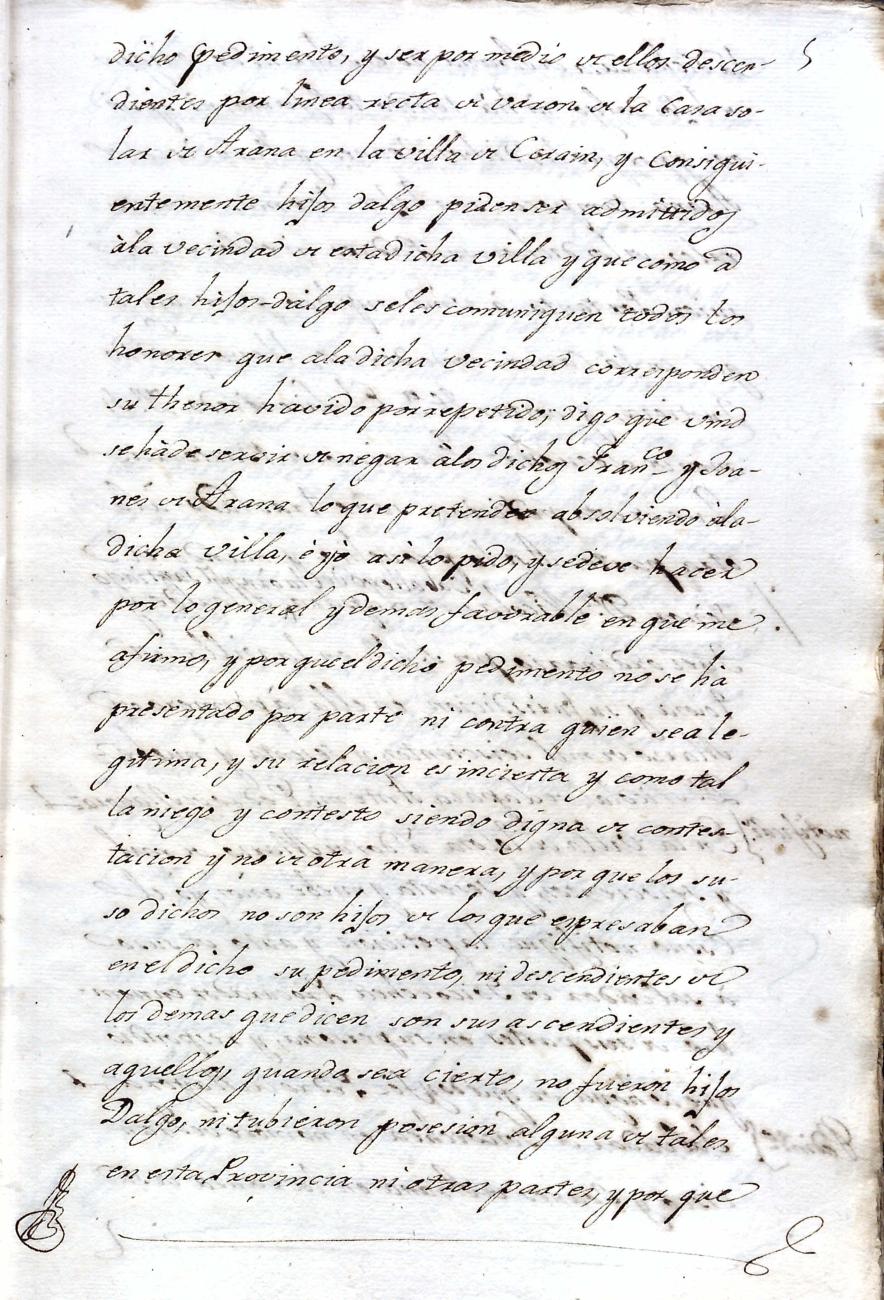 dicho pedimento, y ser por medio de ellos descen- 5
dientes por linea recta de varon de la Casa so-
lar de Arana en la villa de Cerain, y Consigui-
entemente hijos dalgo piden ser admittidos
àla vecindad de esta dicha villa y que como à
tales hijos-dalgo seles comuniquen todos los
honores que ala dicha vecindad corresponden
su thenor havido por repetido; digo que vmd
se hà de servir de negar àlos dichos Fran.co y Joa-
nes de Arana lo que pretenden absolviendo àla
dicha villa, è yo asi lo pido, y se deve hacer
por lo general y demas favorable en que me
afirmo, y por que el dicho pedimento no se ha
presentado por parte ni contra quien sea le-
gitima, y su relacion es incierta y como tal
la niego y contesto siendo digna de contes-
tacion y no de otra manera, y por que los su-
so dichos no son hijos de los que espresaban
en el dicho su pedimento, ni descendientes de
los demas que dicen son sus ascendientes y
aquellos, quando sea cierto, no fueron hijos
Dalgo, ni tubieron posesion alguna de tales
en esta Provincia ni otras partes, y por que